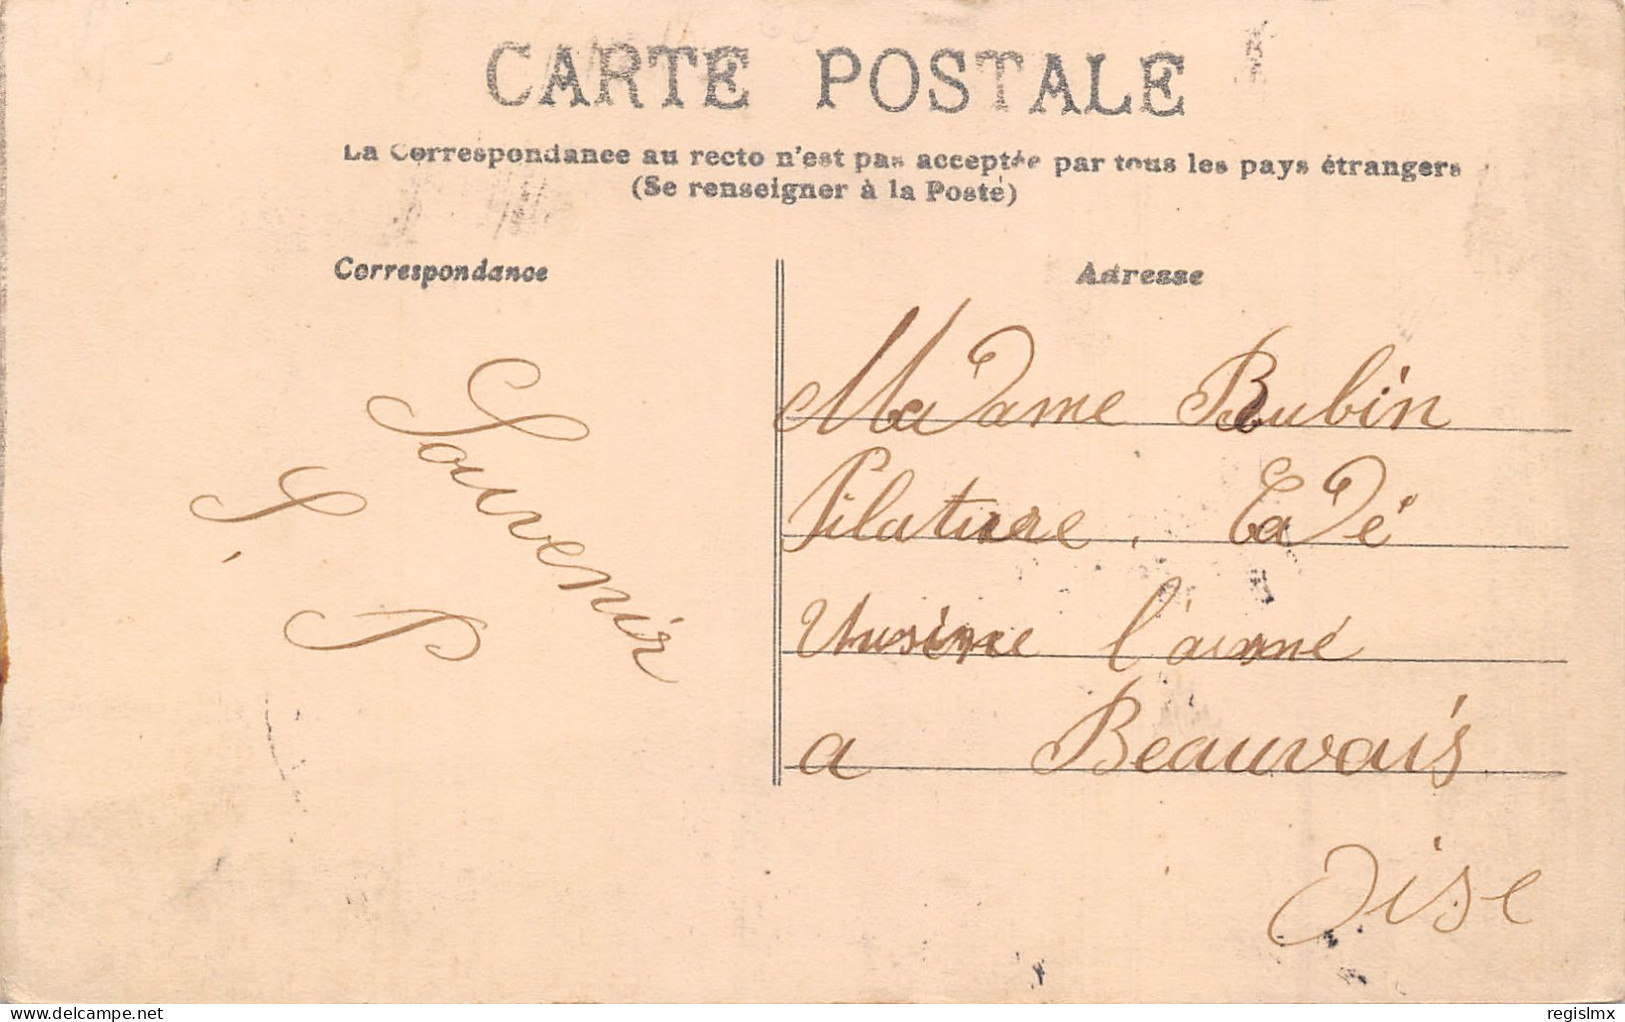 CARTE POSTALE
La Correspondance au recto n'est pas acceptée par tous les pays étrangers
(Se renseigner à la Poste)
Correspondance
Souvenir
Adresse
Madame Bubin
Filature
a Beauvais
Oise
delcampe.net
regislmx